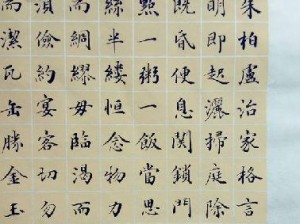 朱柏盧治家格言
明即起灑掃庭除
既昏便息關鎖門
點一粥一飯當思
絲半縷恒念物力
而綢繆毋臨渴而
湏儉約宴客切勿
而潔瓦缶勝金玉